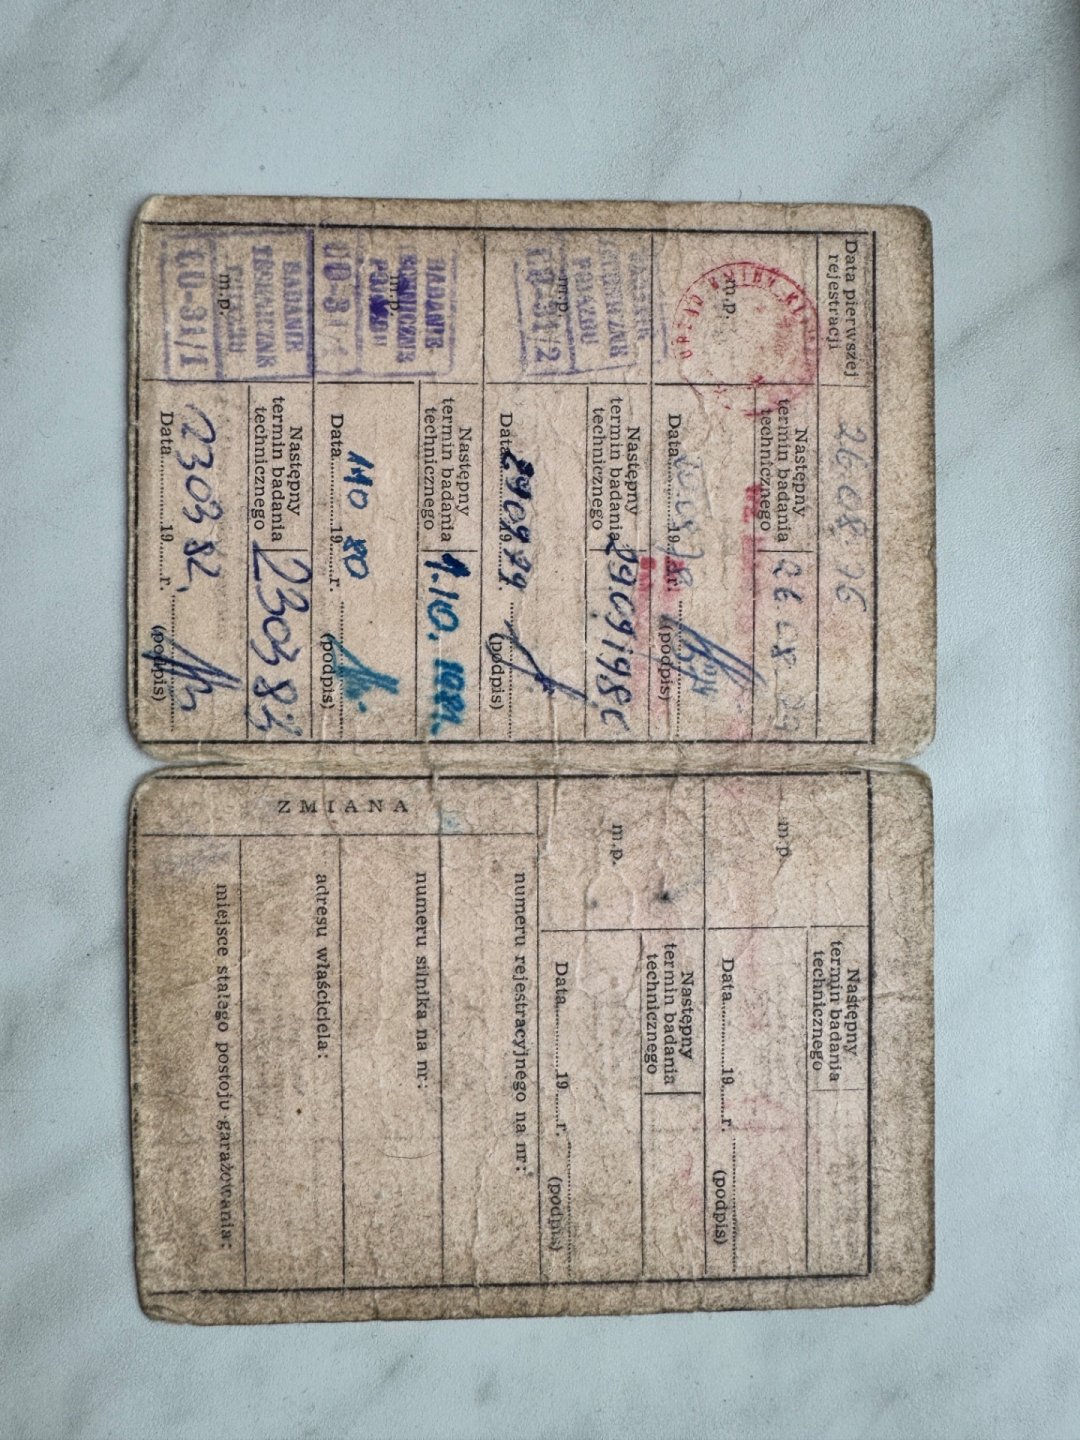 Data pierwszej
rejestracji
26.08.76
Następny
termin badania
technicznego
26.08.79
m.p.
Data 19 r.
(podpis)
Następny
termin badania
technicznego
29.09.198
BADANIE
POJAZDU
m.p.
Data 29 09 19 79 r.
(podpis)
Następny
termin badania
technicznego
1.10.
BADANIE
TECHNICZNE
m.p.
Data 1 10 19 80 r.
(podpis)
Następny
termin badania
technicznego
23 03 84
BADANIE
m.p.
UO-31/1
Data 23 03 19 82 r.
(podpis)
Następny
termin badania
technicznego
m.p.
Data 19 r.
(podpis)
Następny
termin badania
technicznego
m.p.
Data 19 r.
(podpis)
ZMIANA
numeru rejestracyjnego na nr:
numeru silnika na nr:
adresu właściciela:
miejsce stałego postoju garażowania: